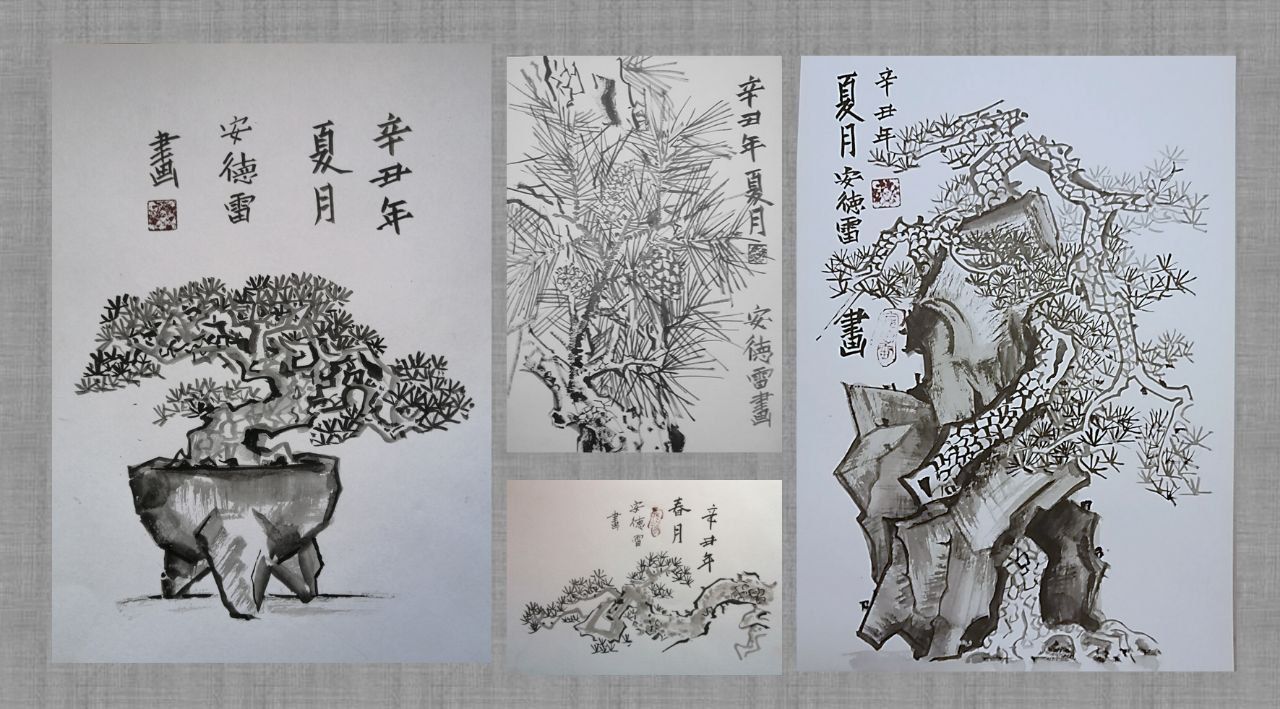 辛丑年
夏月
安德雷
畫
辛丑年夏月
安徳雷畫
辛丑年
春月
安德雷
畫
辛丑年
夏月安徳雷畫